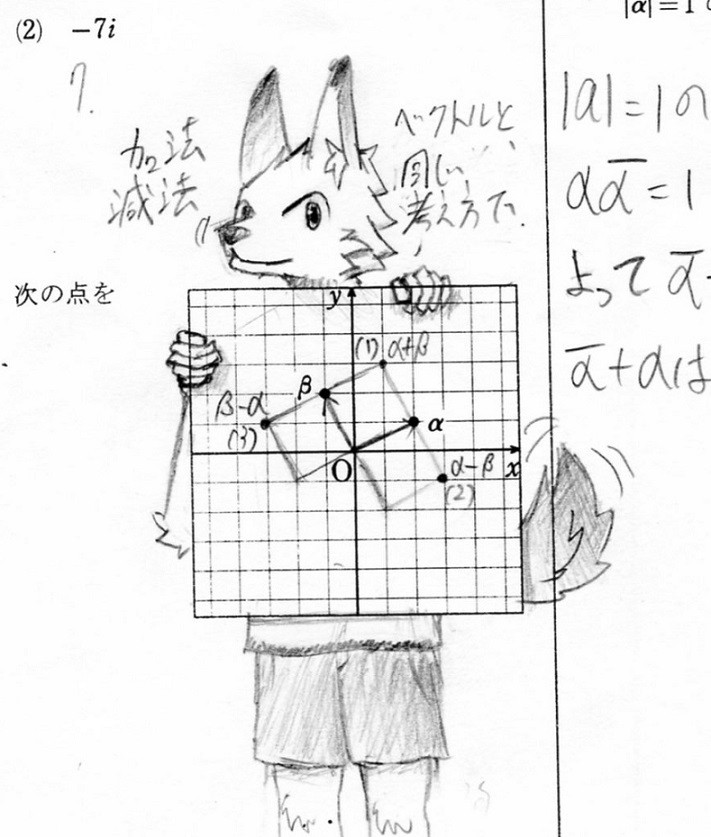 (2) −7i
7.
加法
減法
ベクトルと、
同じ
考え方で.
次の点を
y
(1) α+β
β
β-α
(3)
α
O
x
α-β
(2)
|α|=1
|α|=1の
αᾱ=1
よって ᾱ
ᾱ+αは